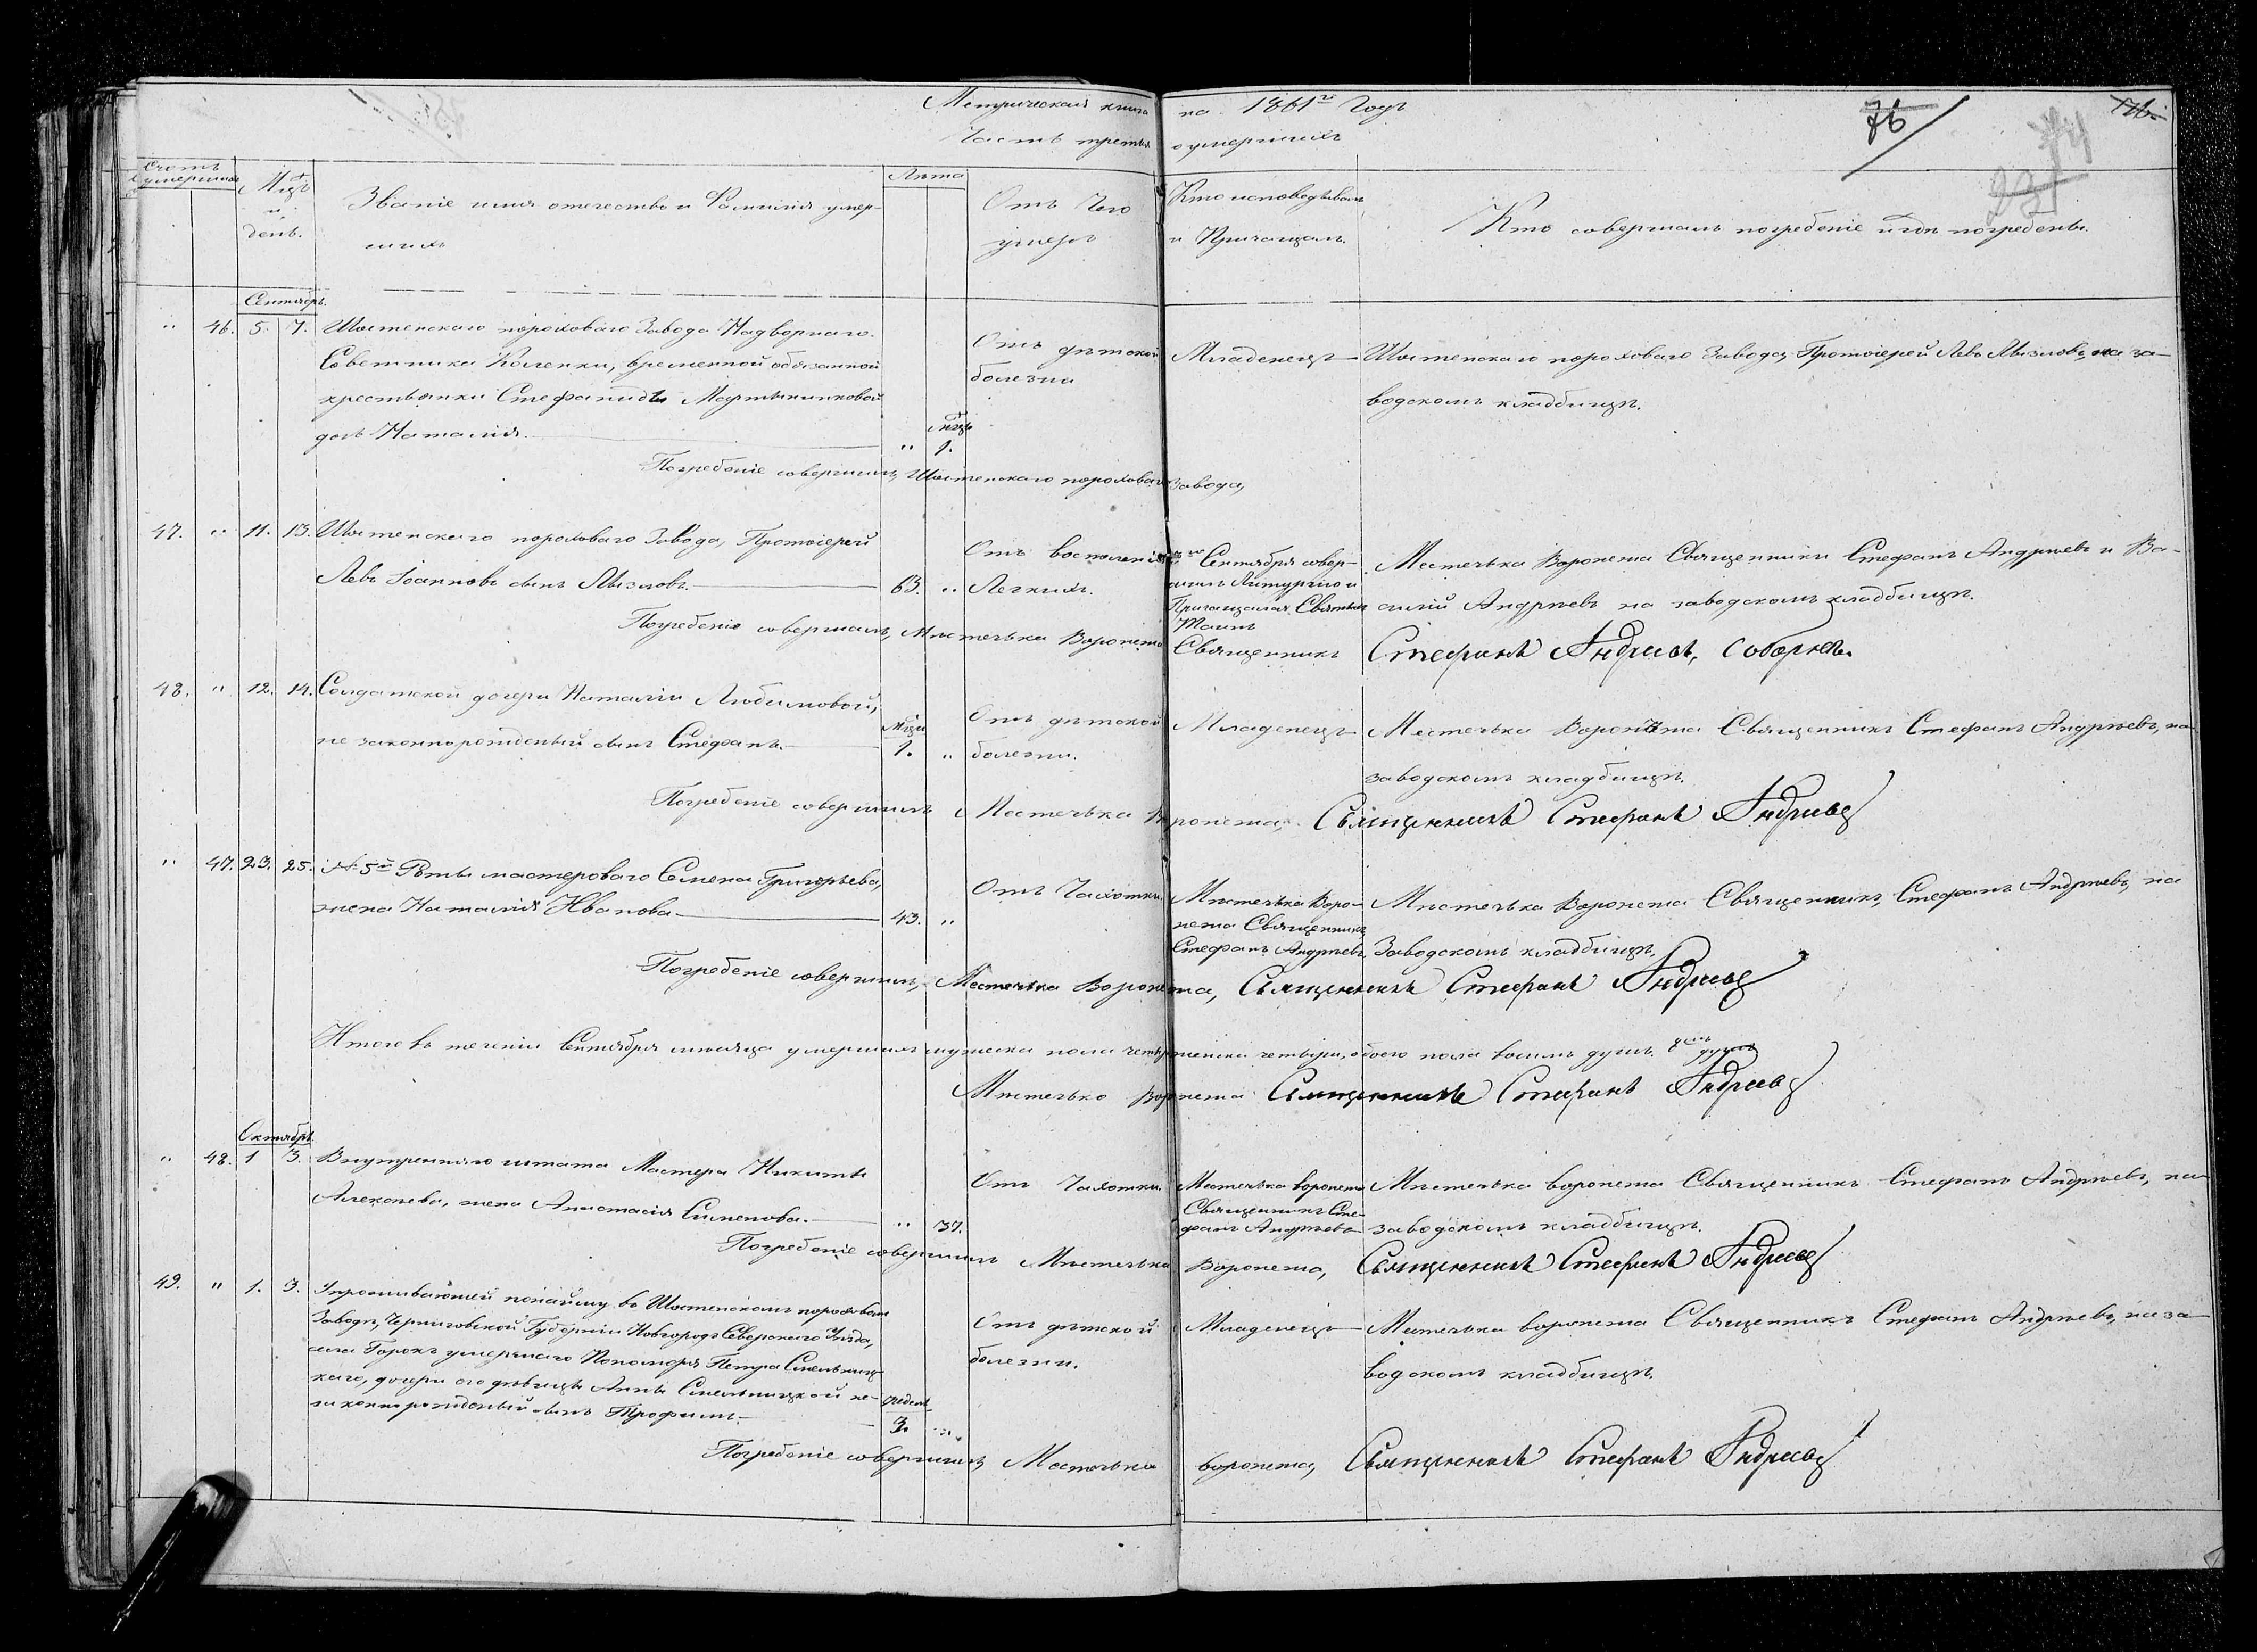 Метрическая книга на 1861го Годъ
Часть третья о умершихъ
76
Счетъ умершихъ
Мцъ и день.
Званіе имя отечество и Фамилія умер-
шихъ
Лѣта
Отъ Чего
умеръ
Кто исповедывалъ
и Причащалъ.
Кто совершалъ погребеніе и гдѣ погребены.
Сентябрь.
" 46. 5. 7. Шостенскаго пороховаго Завода Надворнаго
Советника Коленки, временной обязанной
крестьянки Стефаниды Мартыненковой
дочь Наталія.
Мцъ
" 1.
Отъ дѣтской
болезни
Младенецъ
Шостенскаго пороховаго Завода, Протоіерей Левъ Мызловъ, на за-
водскомъ кладбищѣ.
Погребеніе совершилъ, Шостенскаго пороховаго Завода,
47. " 11. 13. Шостенскаго пороховаго Завода, Протоіерей
Левъ Іоанновъ сынъ Мызловъ.
63. "
Отъ воспаленія
Легкихъ.
Сентября совер-
шилъ Литургію и
Причащался Святыхъ
Таинъ
Местечька Воронежа Священники Стефанъ Андріевъ и Ва-
силій Андріевъ на заводскомъ кладбищѣ.
Погребеніе совершалъ, Мѣстечька Воронежа Священникъ Стефанъ Андріевъ, соборне.
48. " 12. 14. Солдатской дочери Наталіи Любимовой,
не законнорожденый сынъ Стефанъ.
Мцъ
1. "
Отъ дѣтской
болезни.
Младенецъ
Местечька Воронежа Священникъ Стефанъ Андріевъ, на
заводскомъ кладбищѣ.
Погребеніе совершилъ Местечька Воронежа, Священникъ Стефанъ Андріевъ
" 47. 23. 25. № 5й Роты мастероваго Семена Григорьева,
жена Наталія Иванова
43. "
Отъ Чахотки.
Мѣстечька Воро-
нежа Священникъ
Стефанъ Андріевъ
Мѣстечька Воронежа Священникъ, Стефанъ Андріевъ, на
Заводскомъ кладбищѣ.
Погребеніе совершилъ, Местечька Воронежа, Священникъ Стефанъ Андріевъ
Итого въ теченіи Сентября месяца умершихъ мужеска пола четыре женска четыри, обоего пола восимъ душъ.
Мѣстечько Воронежа Священникъ Стефанъ Андріевъ
Октябрь.
" 48. 1 3. Внутренняго штата Мастера Никиты
Алексеева, жена Анастасія Сименова.
" 37.
Отъ Чахотки.
Местечька Воронежа
Священникъ Сте-
фанъ Андріевъ
Мѣстечька Воронежа Священникъ Стефанъ Андріевъ, на
заводскомъ кладбищѣ.
Погребеніе совершилъ Мѣстечька Воронежа, Священникъ Стефанъ Андріевъ
49. " 1. 3. Упроживающей понайму въ Шостенскомъ пороховомъ
Заводѣ, Черниговской Губерніи Новгородъ Северскаго Уѣзда,
села Горокъ умершаго Пономаря Петра Смельниц-
каго, дочери его дѣвицы Анны Смельницкой не-
законнорожденый сынъ Трофимъ.
3. "
Отъ дѣтской
болезни.
Младенецъ
Местечька Воронежа Священникъ Стефанъ Андріевъ, на за-
водскомъ кладбищѣ.
Погребеніе совершилъ, Местечька Воронежа, Священникъ Стефанъ Андріевъ